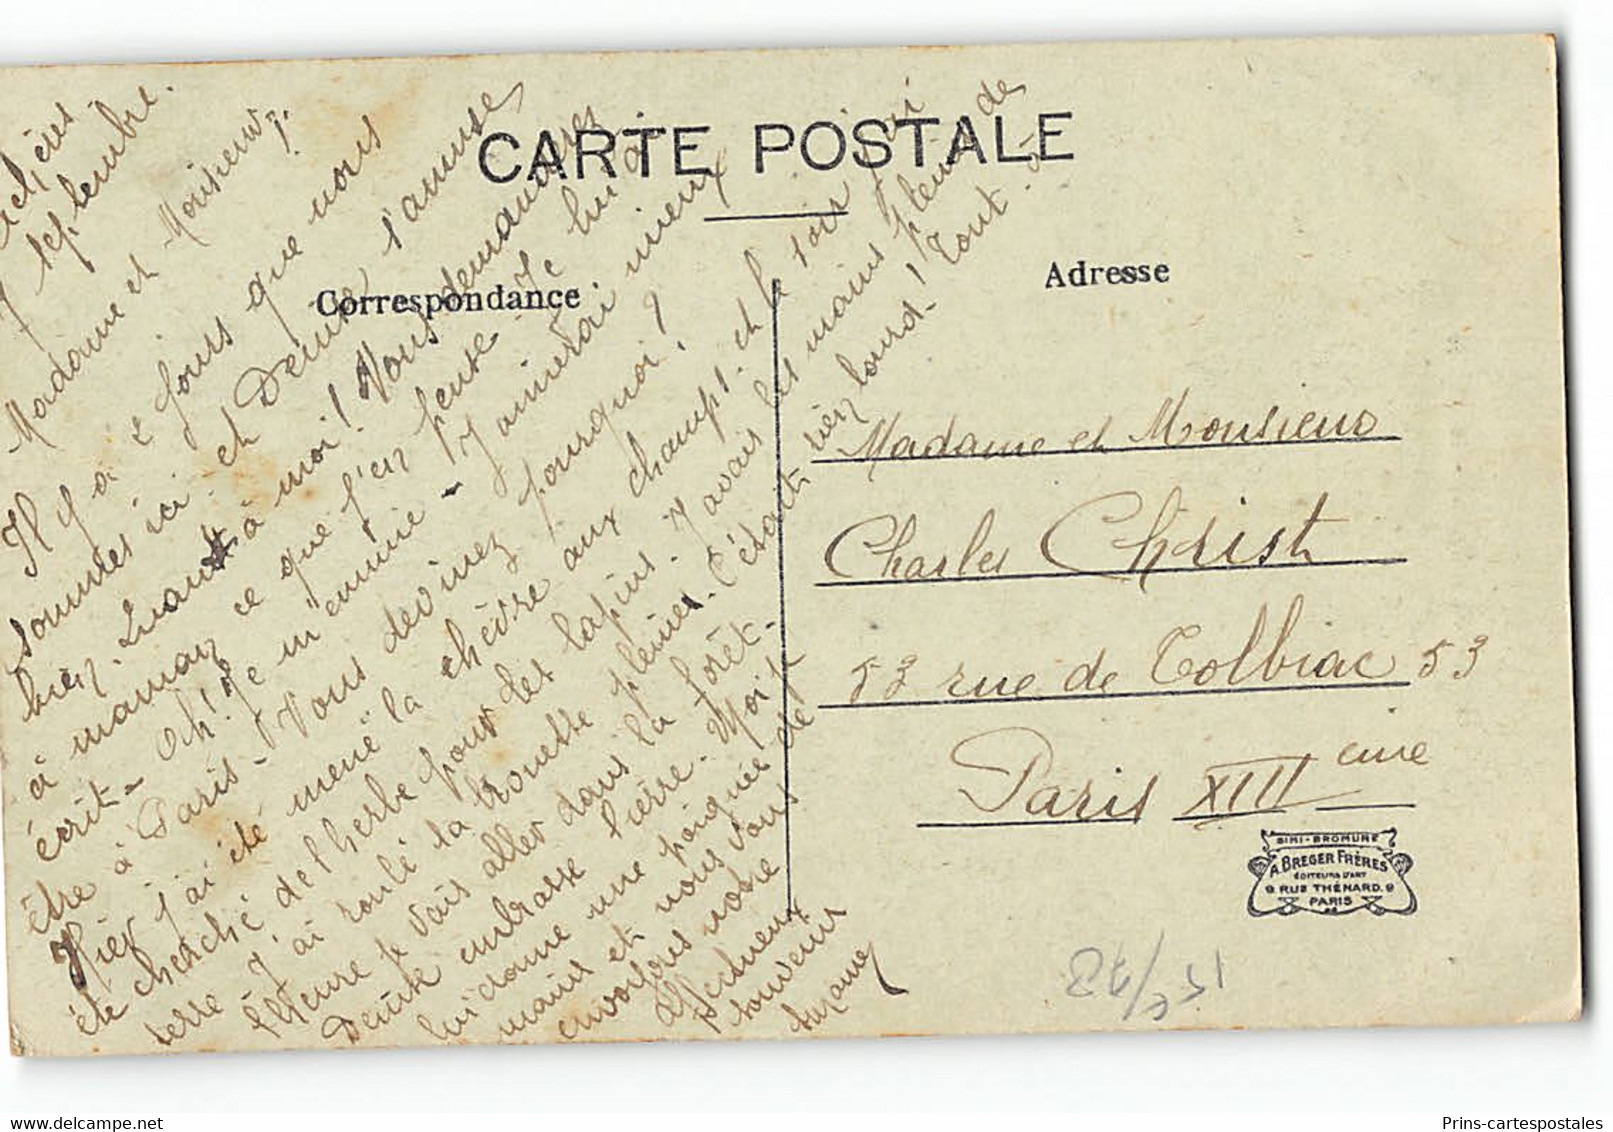 CARTE POSTALE
Correspondance
Adresse
septembre.
Madame et Monsieur,
Il y a 2 jours que nous
sommes ici. et Denise s'amuse
bien. Quant à moi! Vous demanderez
à maman ce que j'en pense. Je lui ai
écrit - Oh! Je m'ennuie - J'aimerai mieux
être à Paris - Vous devinez pourquoi?
Hier j'ai été mené la chèvre aux champs. et le soir j'ai
été cherché de l'herbe pour les lapins. J'avais les mains pleine de
terre J'ai roulé la brouette pleine. C'était rien lourd! Tout à
l'heure je vais aller dans la forêt -
Denise embrasse Pierre. Moi je
lui donne une poignée de
main et nous vous
envoyons notre
affectueux
souvenir
Suzanne
Madame et Monsieur
Charles Christ
53 rue de Tolbiac 53
Paris XIII eme
SIMI-BROMURE
A. BREGER FRÈRES
ÉDITEURS D'ART
9. RUE THÉNARD. 9
PARIS
Prins-cartespostales
delcampe.net